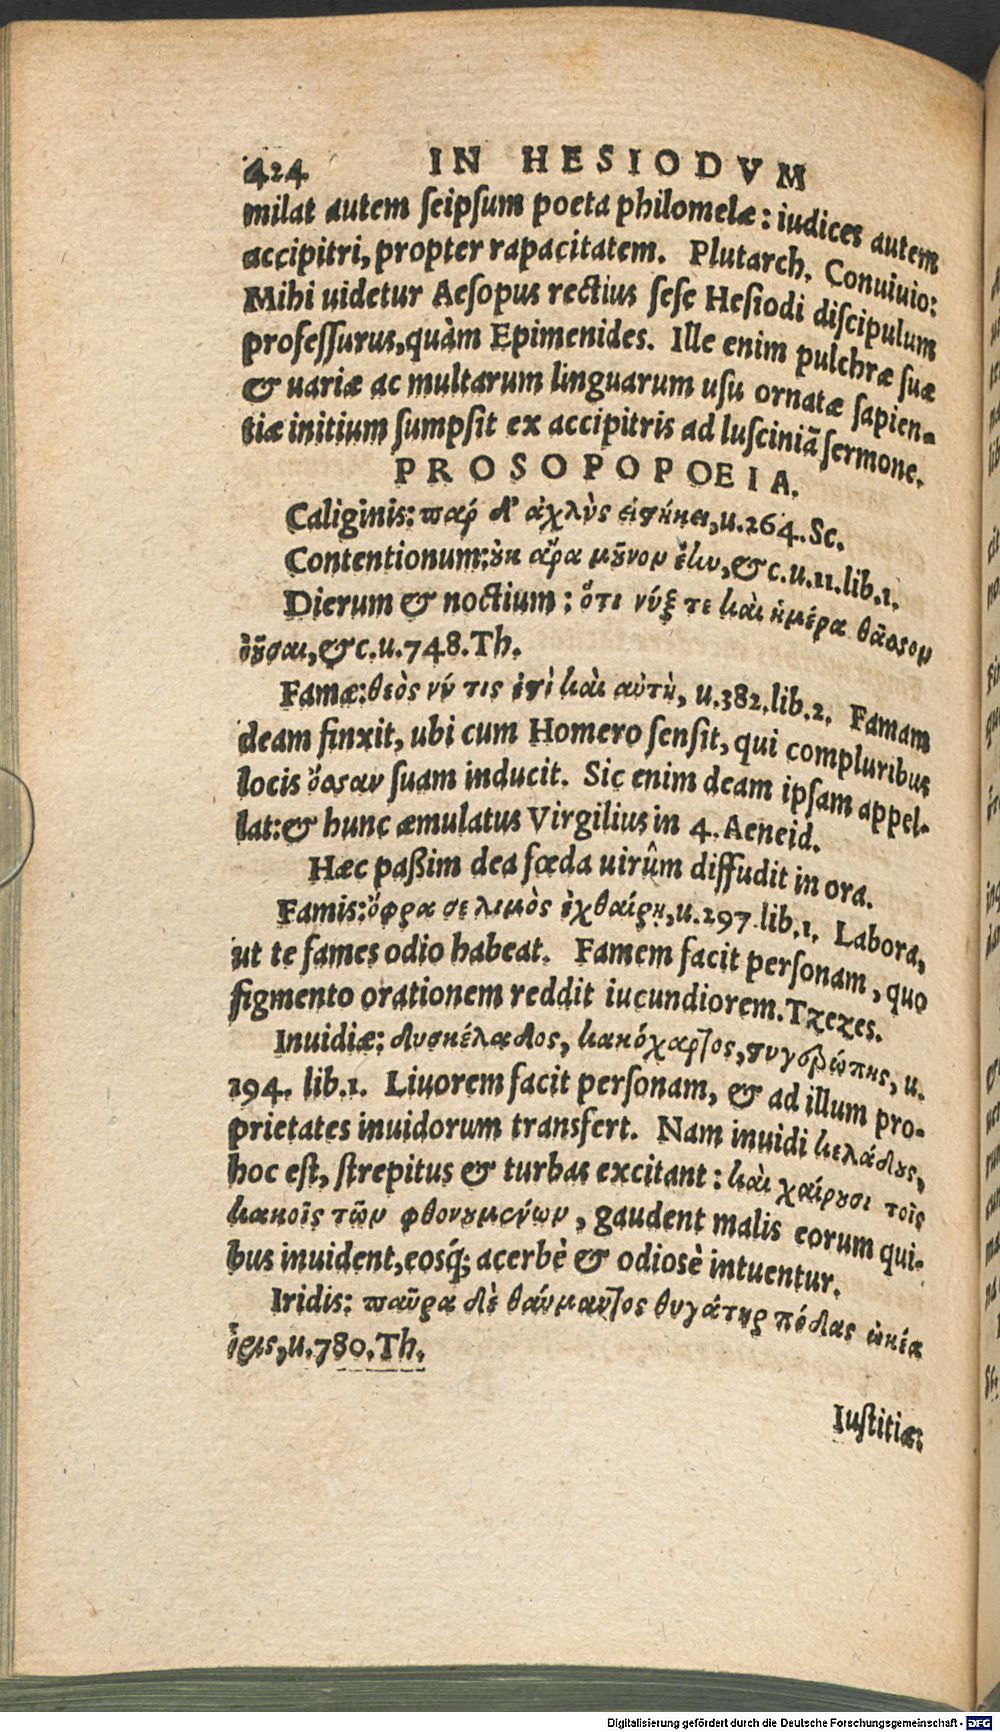 424 IN HESIODVM
milat autem ſeipſum poeta philomelæ: iudices autem
accipitri, propter rapacitatem. Plutarch. Conuiuio:
Mihi uidetur Aeſopus rectius ſeſe Heſiodi diſcipulum
profeſſurus, quàm Epimenides. Ille enim pulchræ ſuæ
& uariæ ac multarum linguarum uſu ornatæ ſapien-
tiæ initium ſumpſit ex accipitris ad luſciniã ſermone.
PROSOPOPOEIA.
Caliginis: παρ δ' ἀχλὺς εἱστήκει, u.264. Sc.
Contentionum: οὐκ ἄρα μοῦνον ἔην, &c. u.11. lib.1.
Dierum & noctium: ὅτι νύξ τε καὶ ἡμέρα θᾶσσον
ἰοῦσαι, &c. u.748. Th.
Famæ: θεὸς νύ τις ἐστὶ καὶ αὐτὴ, u.382. lib.2. Famam
deam finxit, ubi cum Homero ſenſit, qui compluribus
locis ὄσσαν ſuam inducit. Sic enim deam ipſam appel-
lat: & hunc æmulatus Virgilius in 4. Aeneid.
Hæc paßim dea fœda uirûm diffudit in ora.
Famis: ὄφρα σε λιμὸς ἐχθαίρῃ, u.297. lib.1. Labora,
ut te fames odio habeat. Famem facit perſonam, quo
figmento orationem reddit iucundiorem. Tzezes.
Inuidiæ: δυσκέλαδος, κακόχαρτος, στυγερώπης, u.
194. lib.1. Liuorem facit perſonam, & ad illum pro-
prietates inuidorum transfert. Nam inuidi κελάδους,
hoc eſt, ſtrepitus & turbas excitant: καὶ χαίρουσι τοῖς
κακοῖς τῶν φθονουμένων, gaudent malis eorum qui-
bus inuident, eosq́; acerbè & odiosè intuentur.
Iridis: παῦρα δὲ θαύμαντος θυγάτηρ πόδας ὠκέα
ἶρις, u.780. Th.
Iuſtitiæ: